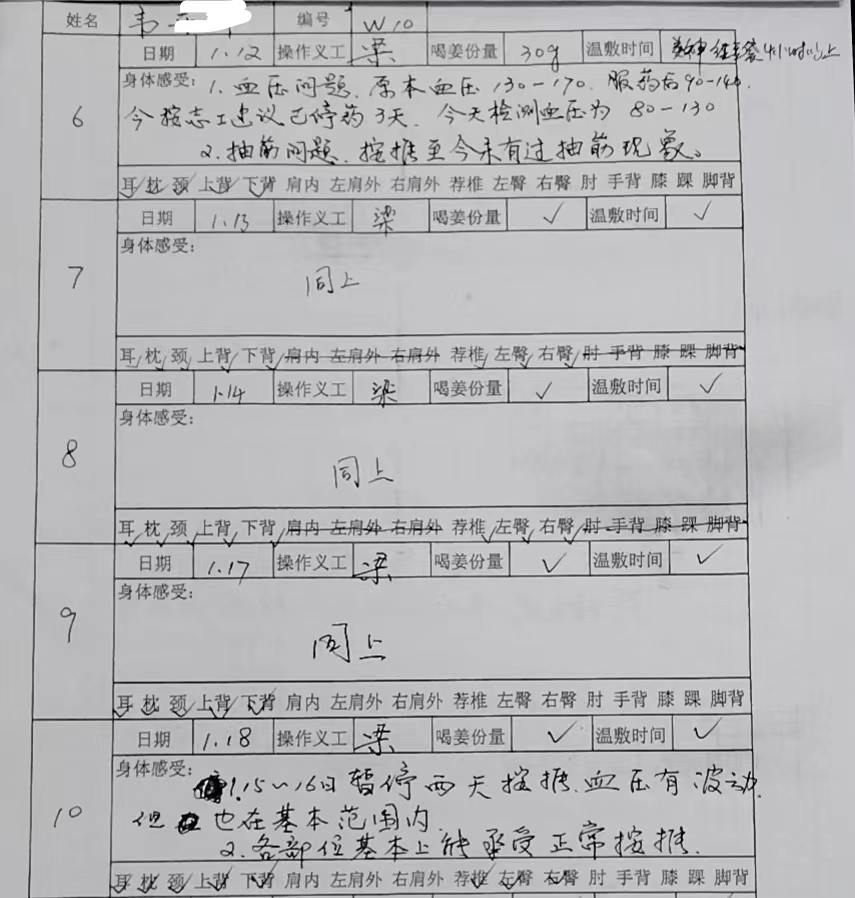 姓名 韦 编号 W10
6 日期 1.12 操作义工 梁 喝姜份量 30g 温敷时间 4小时以上
身体感受: 1. 血压问题. 原本血压 130-170. 服药后 90-140.
今按志工建议已停药3天. 今天检测血压为 80-130
2. 抽筋问题. 按推至今未有过抽筋现象。
耳 枕 颈 上背 下背 肩内 左肩外 右肩外 荐椎 左臀 右臀 肘 手背 膝 踝 脚背
7 日期 1.13 操作义工 梁 喝姜份量 ✓ 温敷时间 ✓
身体感受:
同上
耳 枕 颈 上背 下背 肩内 左肩外 右肩外 荐椎 左臀 右臀 肘 手背 膝 踝 脚背
8 日期 1.14 操作义工 梁 喝姜份量 ✓ 温敷时间 ✓
身体感受:
同上
耳 枕 颈 上背 下背 肩内 左肩外 右肩外 荐椎 左臀 右臀 肘 手背 膝 踝 脚背
9 日期 1.17 操作义工 梁 喝姜份量 ✓ 温敷时间 ✓
身体感受:
同上
耳 枕 颈 上背 下背 肩内 左肩外 右肩外 荐椎 左臀 右臀 肘 手背 膝 踝 脚背
10 日期 1.18 操作义工 梁 喝姜份量 ✓ 温敷时间 ✓
身体感受: 1.15~16日暂停两天按推. 血压有波动.
但也在基本范围内
2. 各部位基本上能承受正常按推.
耳 枕 颈 上背 下背 肩内 左肩外 右肩外 荐椎 左臀 右臀 肘 手背 膝 踝 脚背